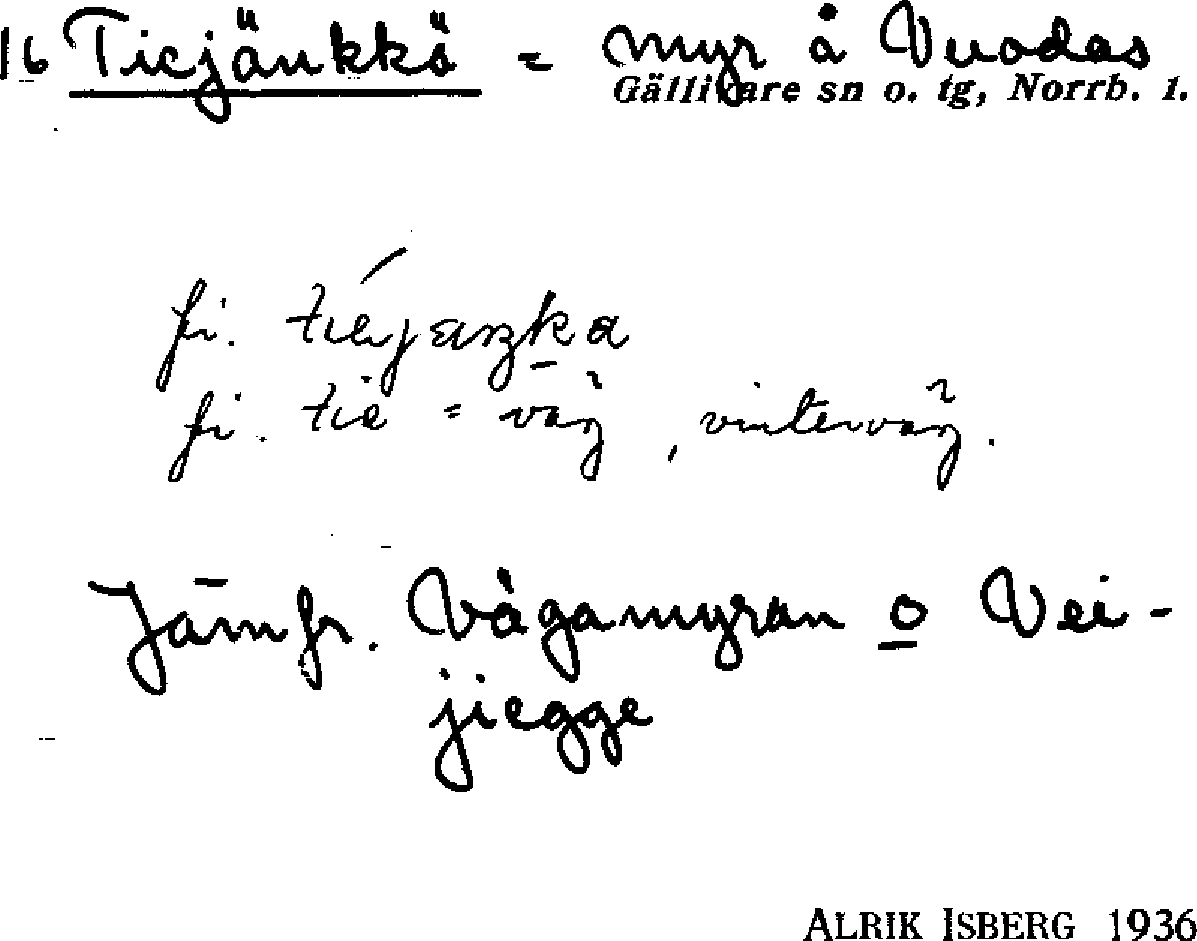 16 Tiejänkkä = myr å Vuodas
Gällivare sn o. tg, Norrb. 1.
fi. tiejæŋka
fi. tie = väg, vinterväg.
Jämfr. Vägamyran o Vei-
jiegge
ALRIK ISBERG 1936